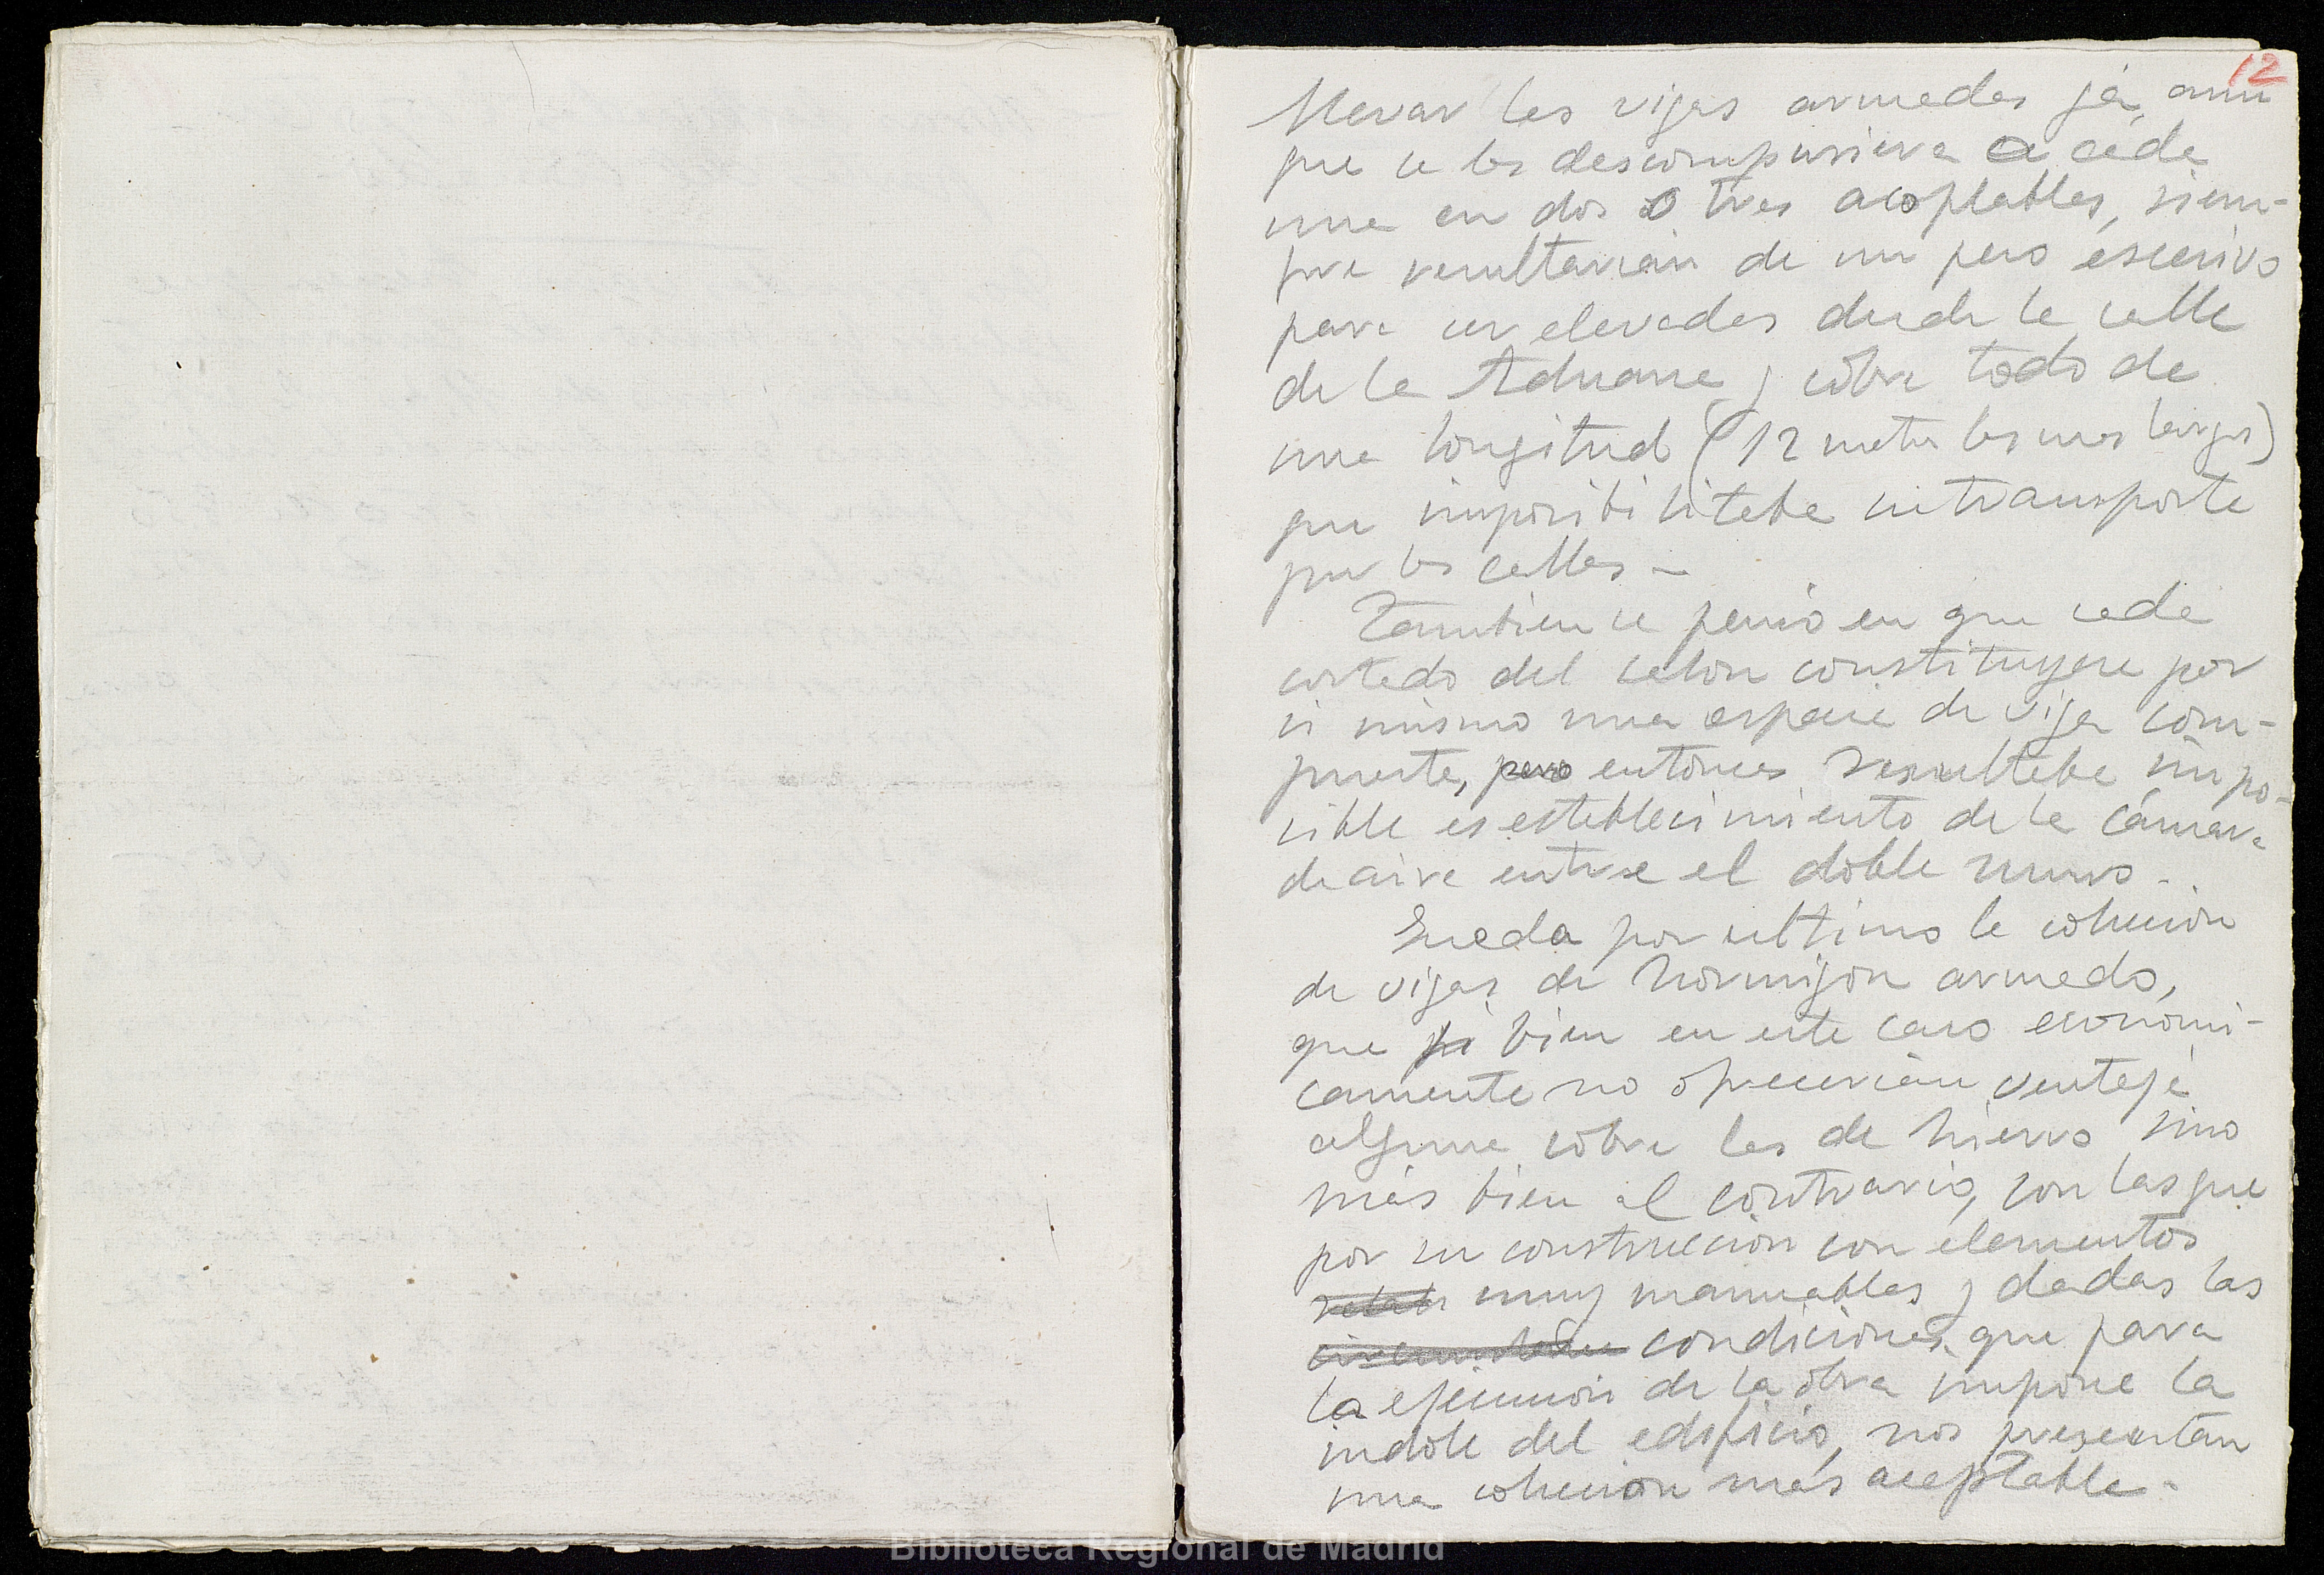 12
llevar las vigas armadas ya, aun
que se las descompusiera a cada
una en dos o tres acoplables, siem-
pre resultarian de un peso escesivo
para ser elevadas desde la calle
de la Aduana y sobre todo de
una longitud (12 metros las mas largas)
que imposibilitaba su transporte
por las calles -
Tambien se penso en que cada
costado del salon constituyese por
si mismo una especie de viga com-
puesta, pero entonces resultaba impo-
sible es establecimiento de la cámara
de aire entre el doble muro -
Queda por ultimo la solucion
de vigas de hormigon armado,
que si bien en este caso economi-
camente no ofrecerian ventaja
alguna sobre las de hierro sino
más bien al contrario, son las que
por su construccion con elementos
muy manuables y dadas las
condiciones que para
la ejecucion de la obra impone la
indole del edificio, nos presentan
una solucion más aceptable -
Biblioteca Regional de Madrid